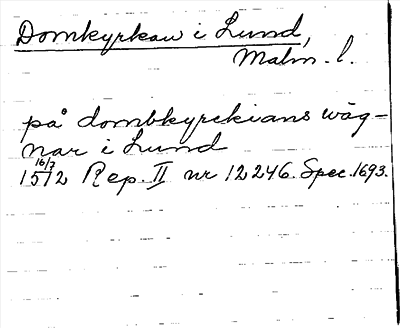 Domkyrkan i Lund,
Malm. l.
på dombkyrckians wäg-
nar i Lund
16/7
1512 Rep. II nr 12246. Spec. 1693.